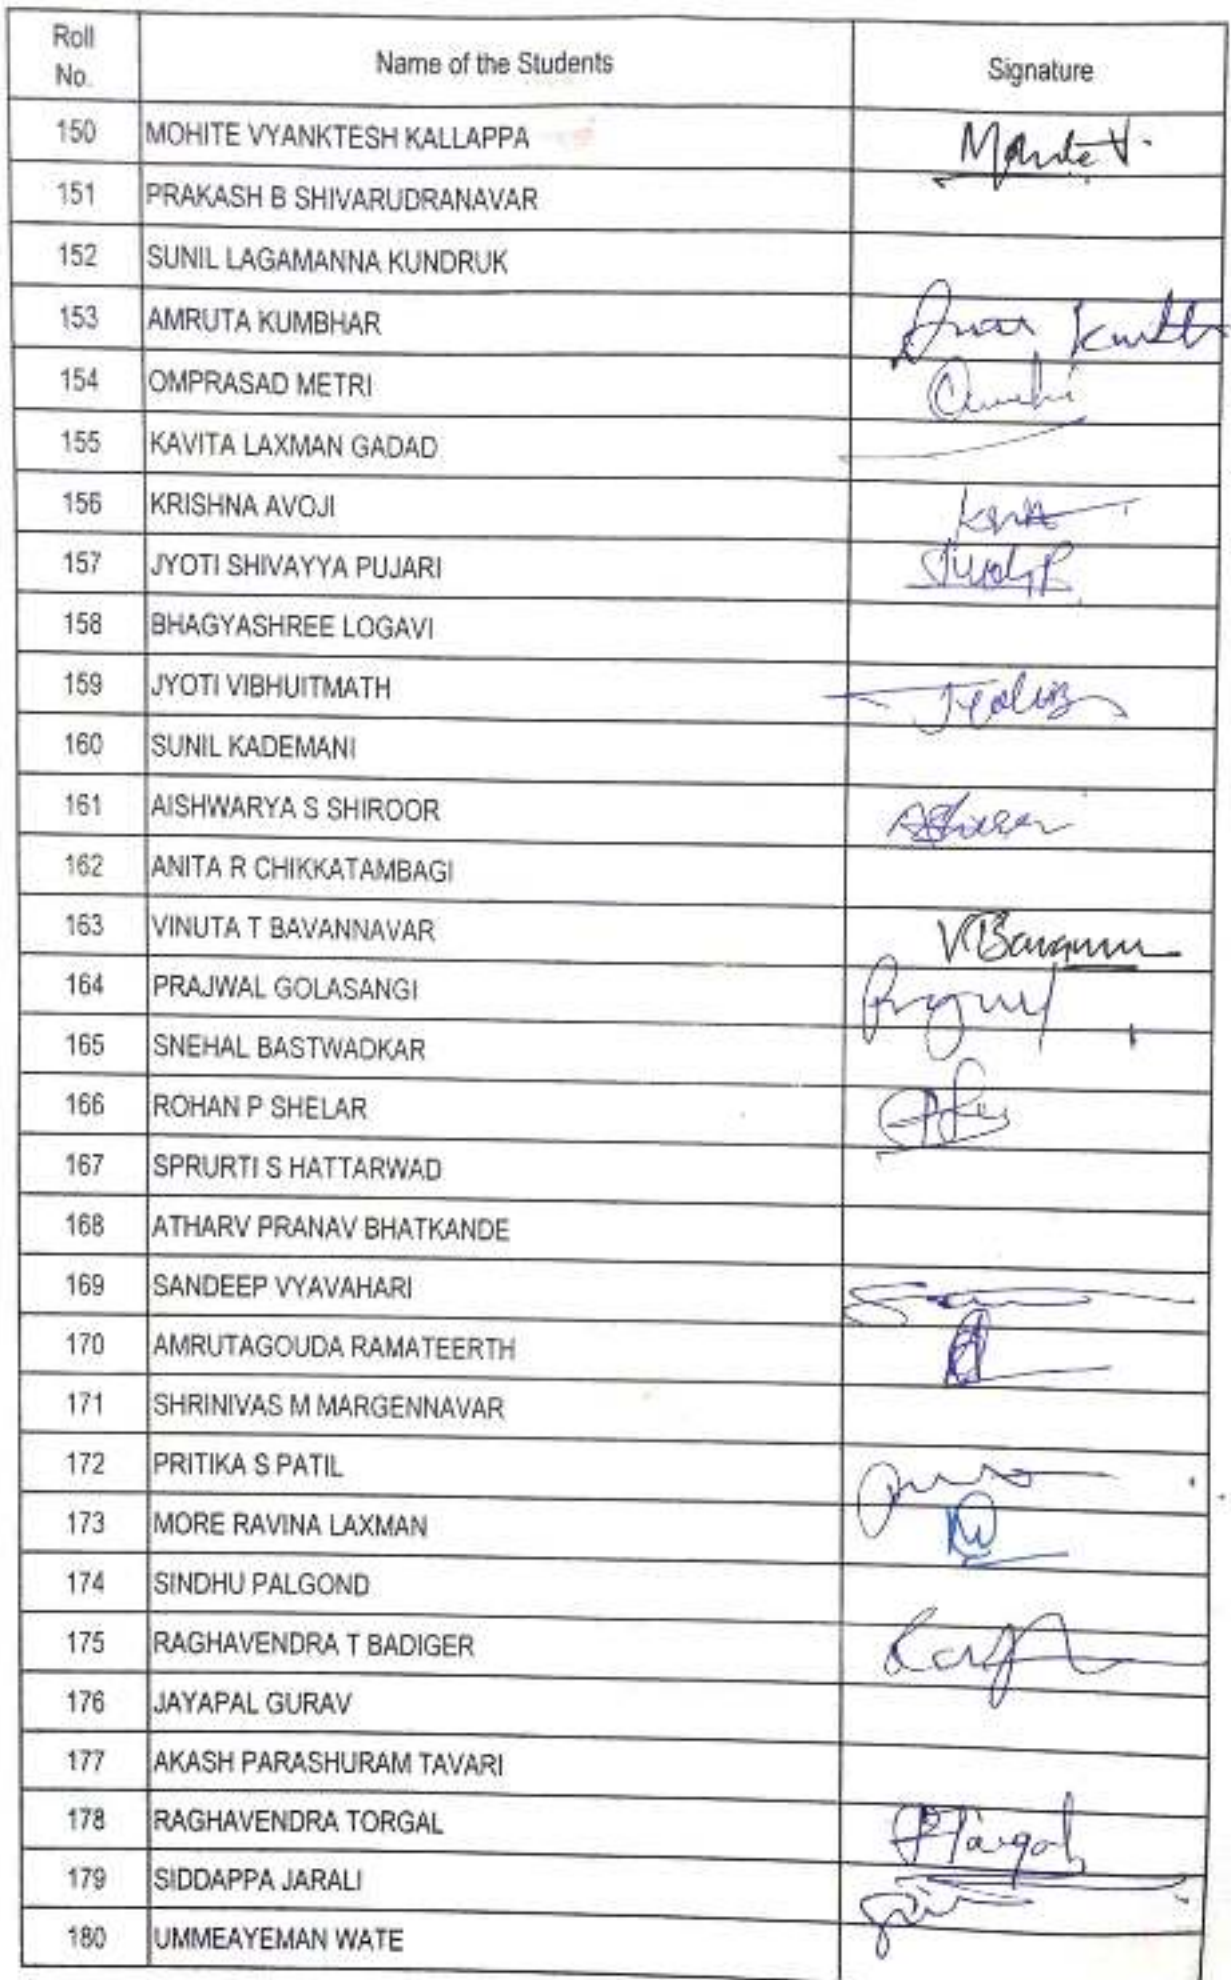 Roll No. Name of the Students Signature
150 MOHITE VYANKTESH KALLAPPA Mohite V.
151 PRAKASH B SHIVARUDRANAVAR
152 SUNIL LAGAMANNA KUNDRUK
153 AMRUTA KUMBHAR
154 OMPRASAD METRI
155 KAVITA LAXMAN GADAD
156 KRISHNA AVOJI
157 JYOTI SHIVAYYA PUJARI
158 BHAGYASHREE LOGAVI
159 JYOTI VIBHUITMATH
160 SUNIL KADEMANI
161 AISHWARYA S SHIROOR
162 ANITA R CHIKKATAMBAGI
163 VINUTA T BAVANNAVAR
164 PRAJWAL GOLASANGI
165 SNEHAL BASTWADKAR
166 ROHAN P SHELAR
167 SPRURTI S HATTARWAD
168 ATHARV PRANAV BHATKANDE
169 SANDEEP VYAVAHARI
170 AMRUTAGOUDA RAMATEERTH
171 SHRINIVAS M MARGENNAVAR
172 PRITIKA S PATIL
173 MORE RAVINA LAXMAN
174 SINDHU PALGOND
175 RAGHAVENDRA T BADIGER
176 JAYAPAL GURAV
177 AKASH PARASHURAM TAVARI
178 RAGHAVENDRA TORGAL
179 SIDDAPPA JARALI
180 UMMEAYEMAN WATE